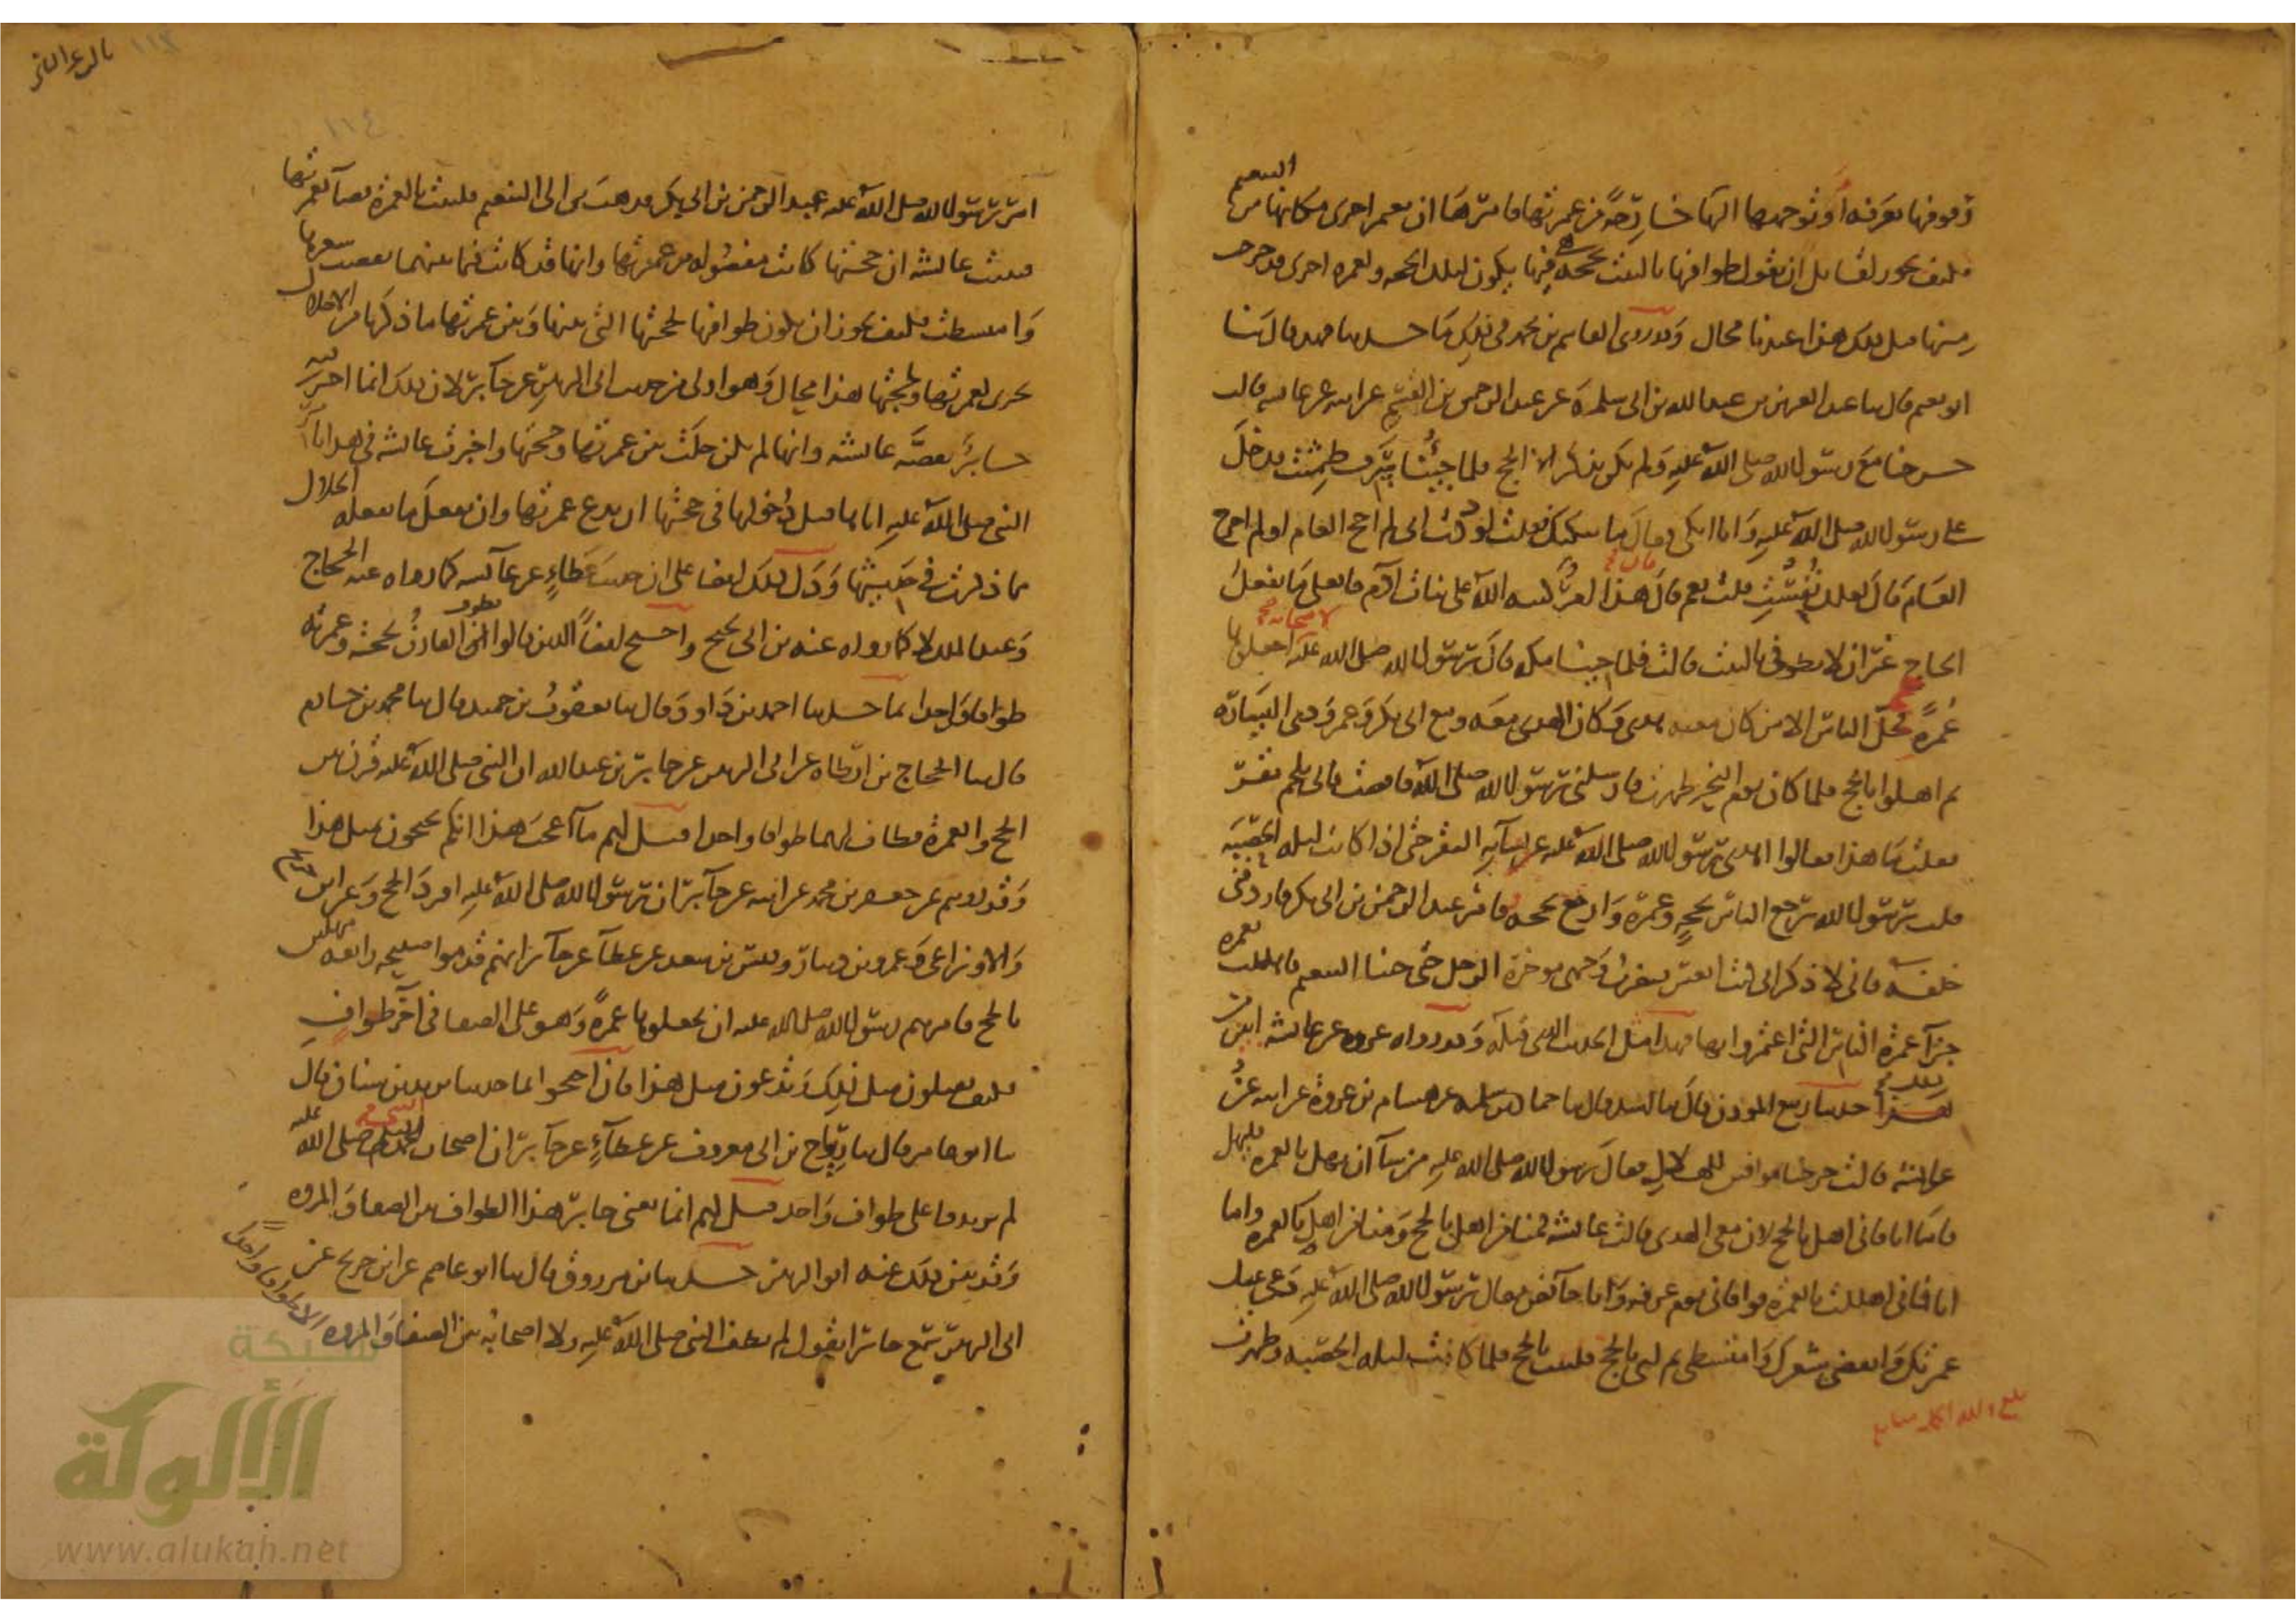 وقوفها بعرفة أو توجهها إليها خارجة من عمرتها فأمرها أن تعتمر أخرى مكانها من التنعيم
فكيف يجوز لقائل أن يقول طوافها بالبيت بحجة هي فيها يكون لتلك الحجة ولعمرة أخرى قد خرجت
منها قبل ذلك هذا عندنا محال وقد روى القاسم بن محمد في ذلك ما حدثنا فهد قال ثنا
أبو نعيم قال ثنا عبد العزيز بن عبد الله بن أبي سلمة عن عبد الرحمن بن القسم عن أبيه عن عائشة قالت
خرجنا مع رسول الله صلى الله عليه ولم يكن نذكر إلا الحج فلما جئنا سرف طمثت فدخل
على رسول الله صلى الله عليه وأنا أبكي فقال ما يبكيك فقلت لوددت أني لم أحج العام أو لم أخرج
العام قال لعلك نفست قلت نعم قال هذا أمر كتبه الله على بنات آدم فافعلي ما يفعل
الحاج غير أن لا تطوفي بالبيت قالت فلما جئنا مكة قال رسول الله صلى الله عليه لأصحابه اجعلوها
عمرة فحل الناس إلا من كان معه هدى وكان الهدى معه ومع أبي بكر وعمر وذوى اليسارة
ثم أهلوا بالحج فلما كان يوم النحر طهرت فأرسلني رسول الله صلى الله فأفضت فأتي بلحم بقر
فقلت ما هذا فقالوا أهدى رسول الله صلى الله عليه عن نسائه البقر حتى إذا كانت ليلة الحصبة
قلت يرسول الله يرجع الناس بحجة وعمرة وأرجع بحجة فأمر عبد الرحمن بن أبي بكر فأردفني
خلفه فإني لأذكر أني كنت أنعس فيضرب وجهي موخرة الرحل حتى جئنا التنعيم فأهللت بعمرة
جزآ عمرة الناس التي اعتمروا بها فهذا مثل الحديث الذي قبله وقد رواه عروة عن عائشة أبين من
ذلك حدثنا ربيع المؤذن قال ثنا أسد قال ثنا حماد بن سلمة عن هشام بن عروة عن أبيه عن
عائشة قالت خرجنا موافين للهلال فقال رسول الله صلى الله عليه من شآ أن يهل بالعمرة فليهل
فأما أنا فإني أهل بالحج لأن معي الهدى قالت عائشة فمنا من أهل بالحج ومنا من أهل بالعمرة وأما
أنا فإني أهللت بالعمرة فوافاني يوم عرفة وأنا حآئض فقال رسول الله صلى الله عليه دعي عنك
عمرتك وانقضي شعرك وامتشطي ثم لبي بالحج فلبيت بالحج فلما كانت ليلة الحصبة وطهرت
أمر رسول الله صلى الله عليه عبد الرحمن بن أبي بكر فذهب بي إلى التنعيم فلبيت بالعمرة قضآ لعمرتها
فبينت عائشة أن حجتها كانت مفصولة من عمرتها وأنها قد كانت فيما بينهما نقضت شعرها
وامتشطت فكيف يجوز أن يكون طوافها لحجتها التي بينها وبين عمرتها ما ذكرنا من الإحلال
يجزى لعمرتها ولحجتها هذا محال وهو أولى من حديث أبي الزبير عن جآبر لأن ذلك إنما أخبر فيه
جابر بقصة عائشة وأنها لم تكن حلت بين عمرتها وحجتها وأخبرت عائشة في هذا بأمر
النبي صلى الله عليه إياها قبل دخولها في حجتها أن تدع عمرتها وأن تفعل ما يفعله الحلال
مما ذكرت في حديثها ودل ذلك أيضا على أن حديث عطاء عن عائشة كما رواه عنه الحجاج
وعبد الملك لا كما رواه عنه بن أبي نجيح واحتج أيضاً الذين قالوا يطوف القارن لحجته وعمرته
طوافا واحدا بما حدثنا احمد بن داود قال ثنا يعقوب بن حميد قال ثنا محمد بن خازم
قال ثنا الحجاج بن أرطاة عن أبي الزبير عن جابر بن عبد الله أن النبي صلى الله عليه قرن بين
الحج والعمرة فطاف لهما طوافا واحدا فقيل لهم مآ أعجب هذا إنكم تحتجون بمثل هذا
وقد رويتم عن جعفر بن محمد عن أبيه عن جآبر أن رسول الله صلى الله عليه أفرد الحج وعن ابن جريج
والأوزاعي وعمرو بن دينار وقيس بن سعد عن عطآ عن جآبر أنهم قدموا صبيحة رابعة مهلين
بالحج فأمرهم رسول الله صلى الله عليه أن يجعلوها عمرة وهو على الصفا في آخر طواف
فكيف تقبلون مثل ذلك وتدعون مثل هذا فإن احتجوا بما حدثنا يزيد بن سنان قال
ثنا أبو عامر قال ثنا رباح بن أبي معروف عن عطآء عن جآبر أن أصحاب النبي صلى الله عليه
لم يزيدوا على طواف واحد قيل لهم إنما يعني جابر هذا الطواف بين الصفا والمروة
وقد بين ذلك عنه أبو الزبير حدثنا بن مرزوق قال ثنا أبو عاصم عن ابن جريج عن
أبي الزبير سمع جابرا يقول لم يطف النبي صلى الله عليه ولا أصحابه بين الصفا والمروة إلا طوافا واحدا
شبكة
الألوكة
www.alukah.net